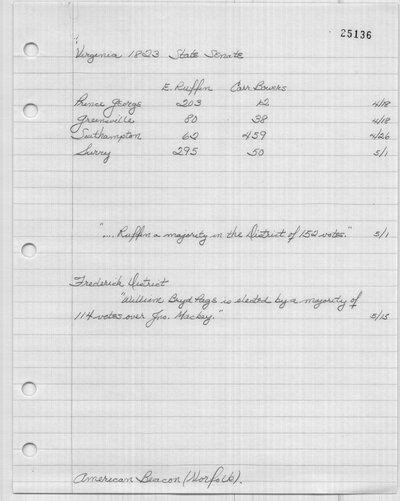 25136
Virginia 1823 State Senate
E. Ruffin Carr Bowers
Prince George 203 12 4/18
Greensville 80 38 4/18
Southampton 62 459 4/26
Surry 295 50 5/1
".... Ruffin a majority in the District of 152 votes." 5/1
Frederick District
"William Bryd Page is elected by a majority of
114 votes over Jno. Mackey." 5/15
American Beacon (Norfolk).